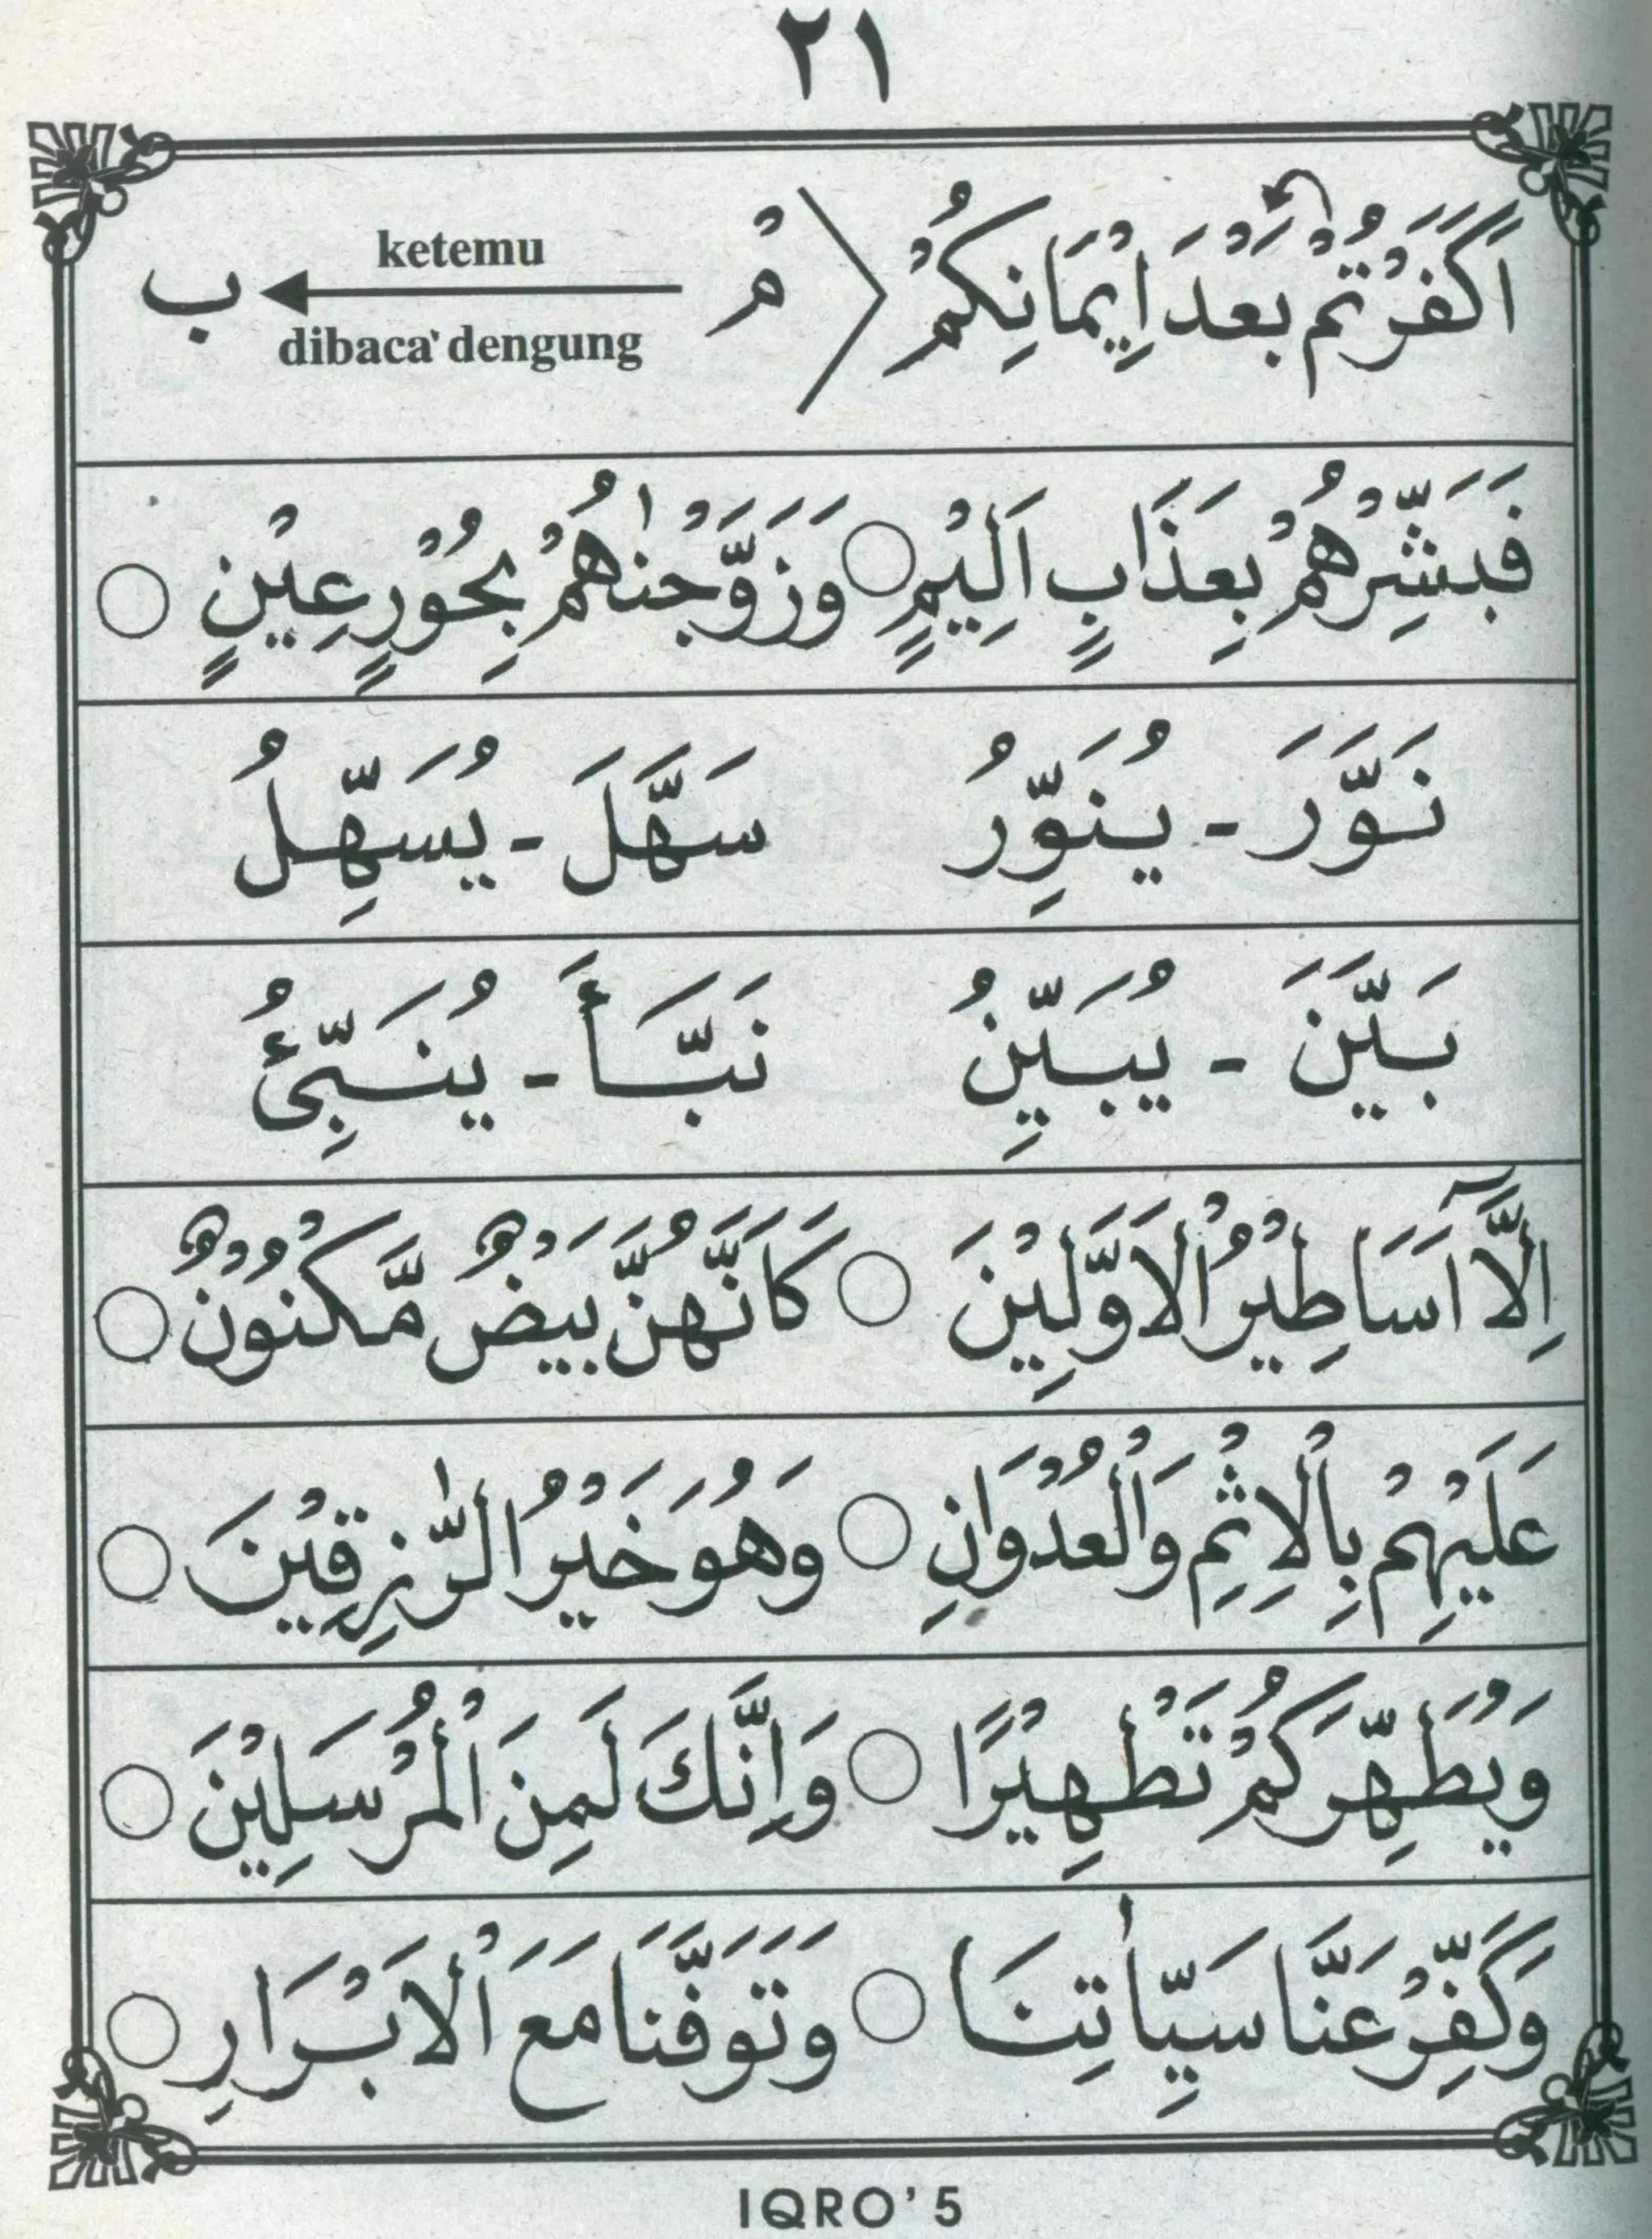 ٢١
اَكَفَرْتُمْ بَعْدَ اِيْمَانِكُمْ مْ ketemu ب
dibaca' dengung
فَبَشِّرْهُمْ بِعَذَابٍ اَلِيْمٍ ○ وَزَوَّجْنٰهُمْ بِحُوْرٍ عِيْنٍ ○
نَوَّرَ - يُنَوِّرُ سَهَّلَ - يُسَهِّلُ
بَيَّنَ - يُبَيِّنُ نَبَّأَ - يُنَبِّئُ
اِلَّآ اَسَاطِيْرُ الْاَوَّلِيْنَ ○ كَاَنَّهُنَّ بَيْضٌ مَّكْنُوْنٌ ○
عَلَيْهِمْ بِالْاِثْمِ وَالْعُدْوَانِ ○ وَهُوَ خَيْرُ الرّٰزِقِيْنَ ○
وَيُطَهِّرَكُمْ تَطْهِيْرًا ○ وَاِنَّكَ لَمِنَ الْمُرْسَلِيْنَ ○
وَكَفِّرْ عَنَّا سَيِّاٰتِنَا ○ وَتَوَفَّنَا مَعَ الْاَبْرَارِ ○
IQRO' 5